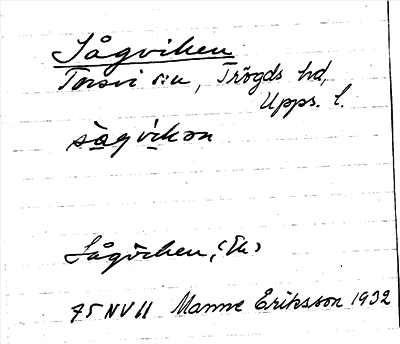 Sågviken
Torsvi sn, Trögds hd,
Upps. l.
sågvikɔn
Sågviken, (Ek)
75 NV 11 Manne Eriksson 1932